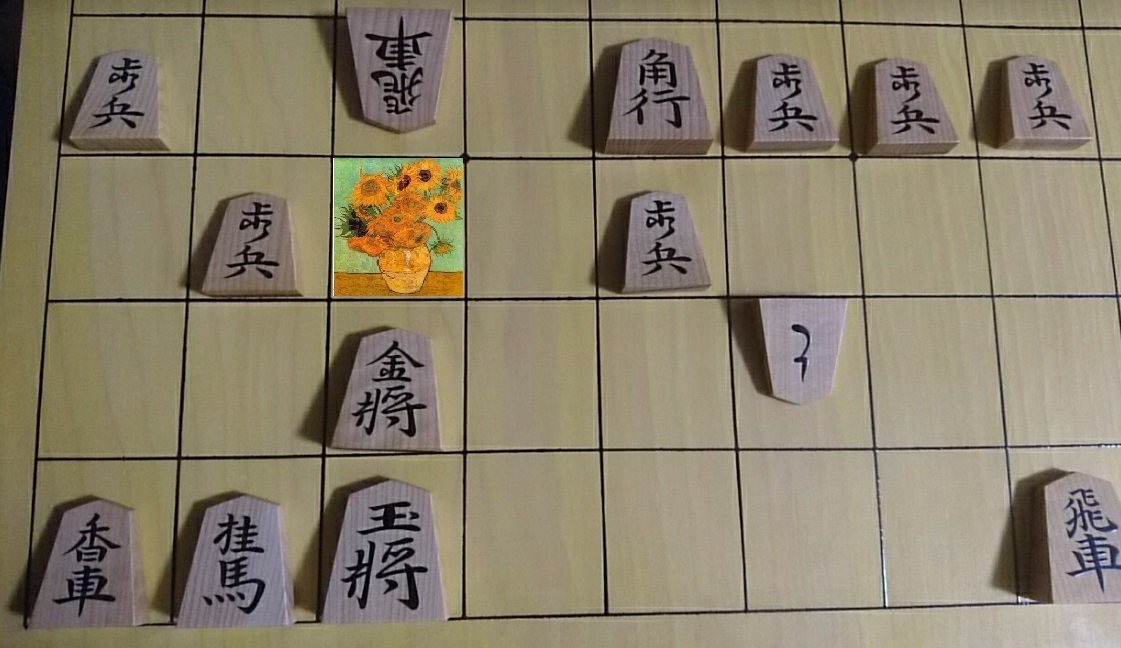 歩兵
飛車
角行
歩兵
歩兵
歩兵
歩兵
歩兵
金將
と
香車
桂馬
玉將
飛車